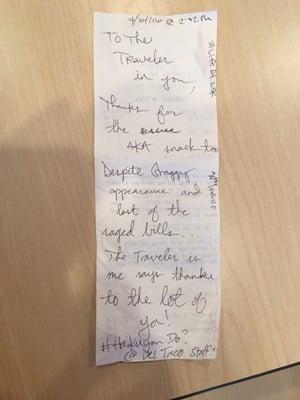 4/20/16 @ 2:32 PM
To The
Traveler
in you,
Thanks for
the
AKA snack too
Despite Craggy
appearance and
last of the
raged bills...
The Traveler in
me says thanks
to the lot of
ya!
#Haikuyou Do?
@ Del Taco Staff: